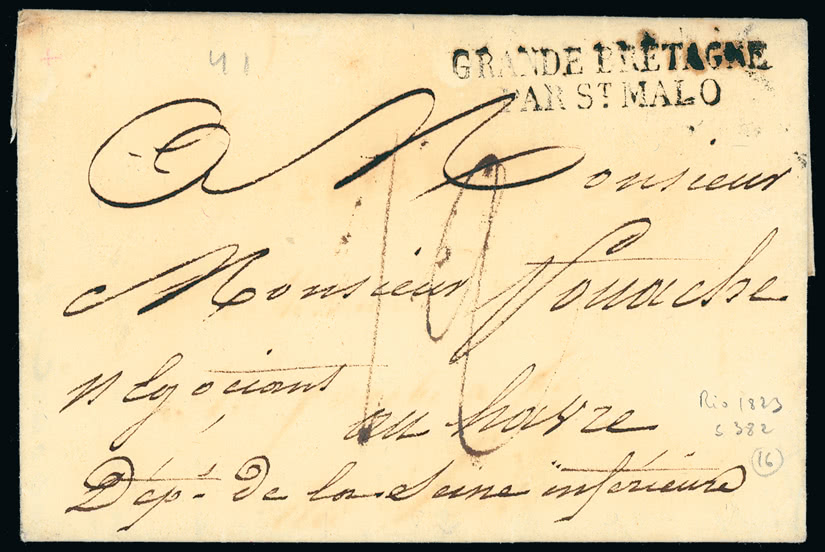 41
GRANDE BRETAGNE
PAR ST MALO
A Monsieur
Monsieur Fouache
négociant
au havre
Dépt. de la Seine inférieure
Rio 1823
s 382
16